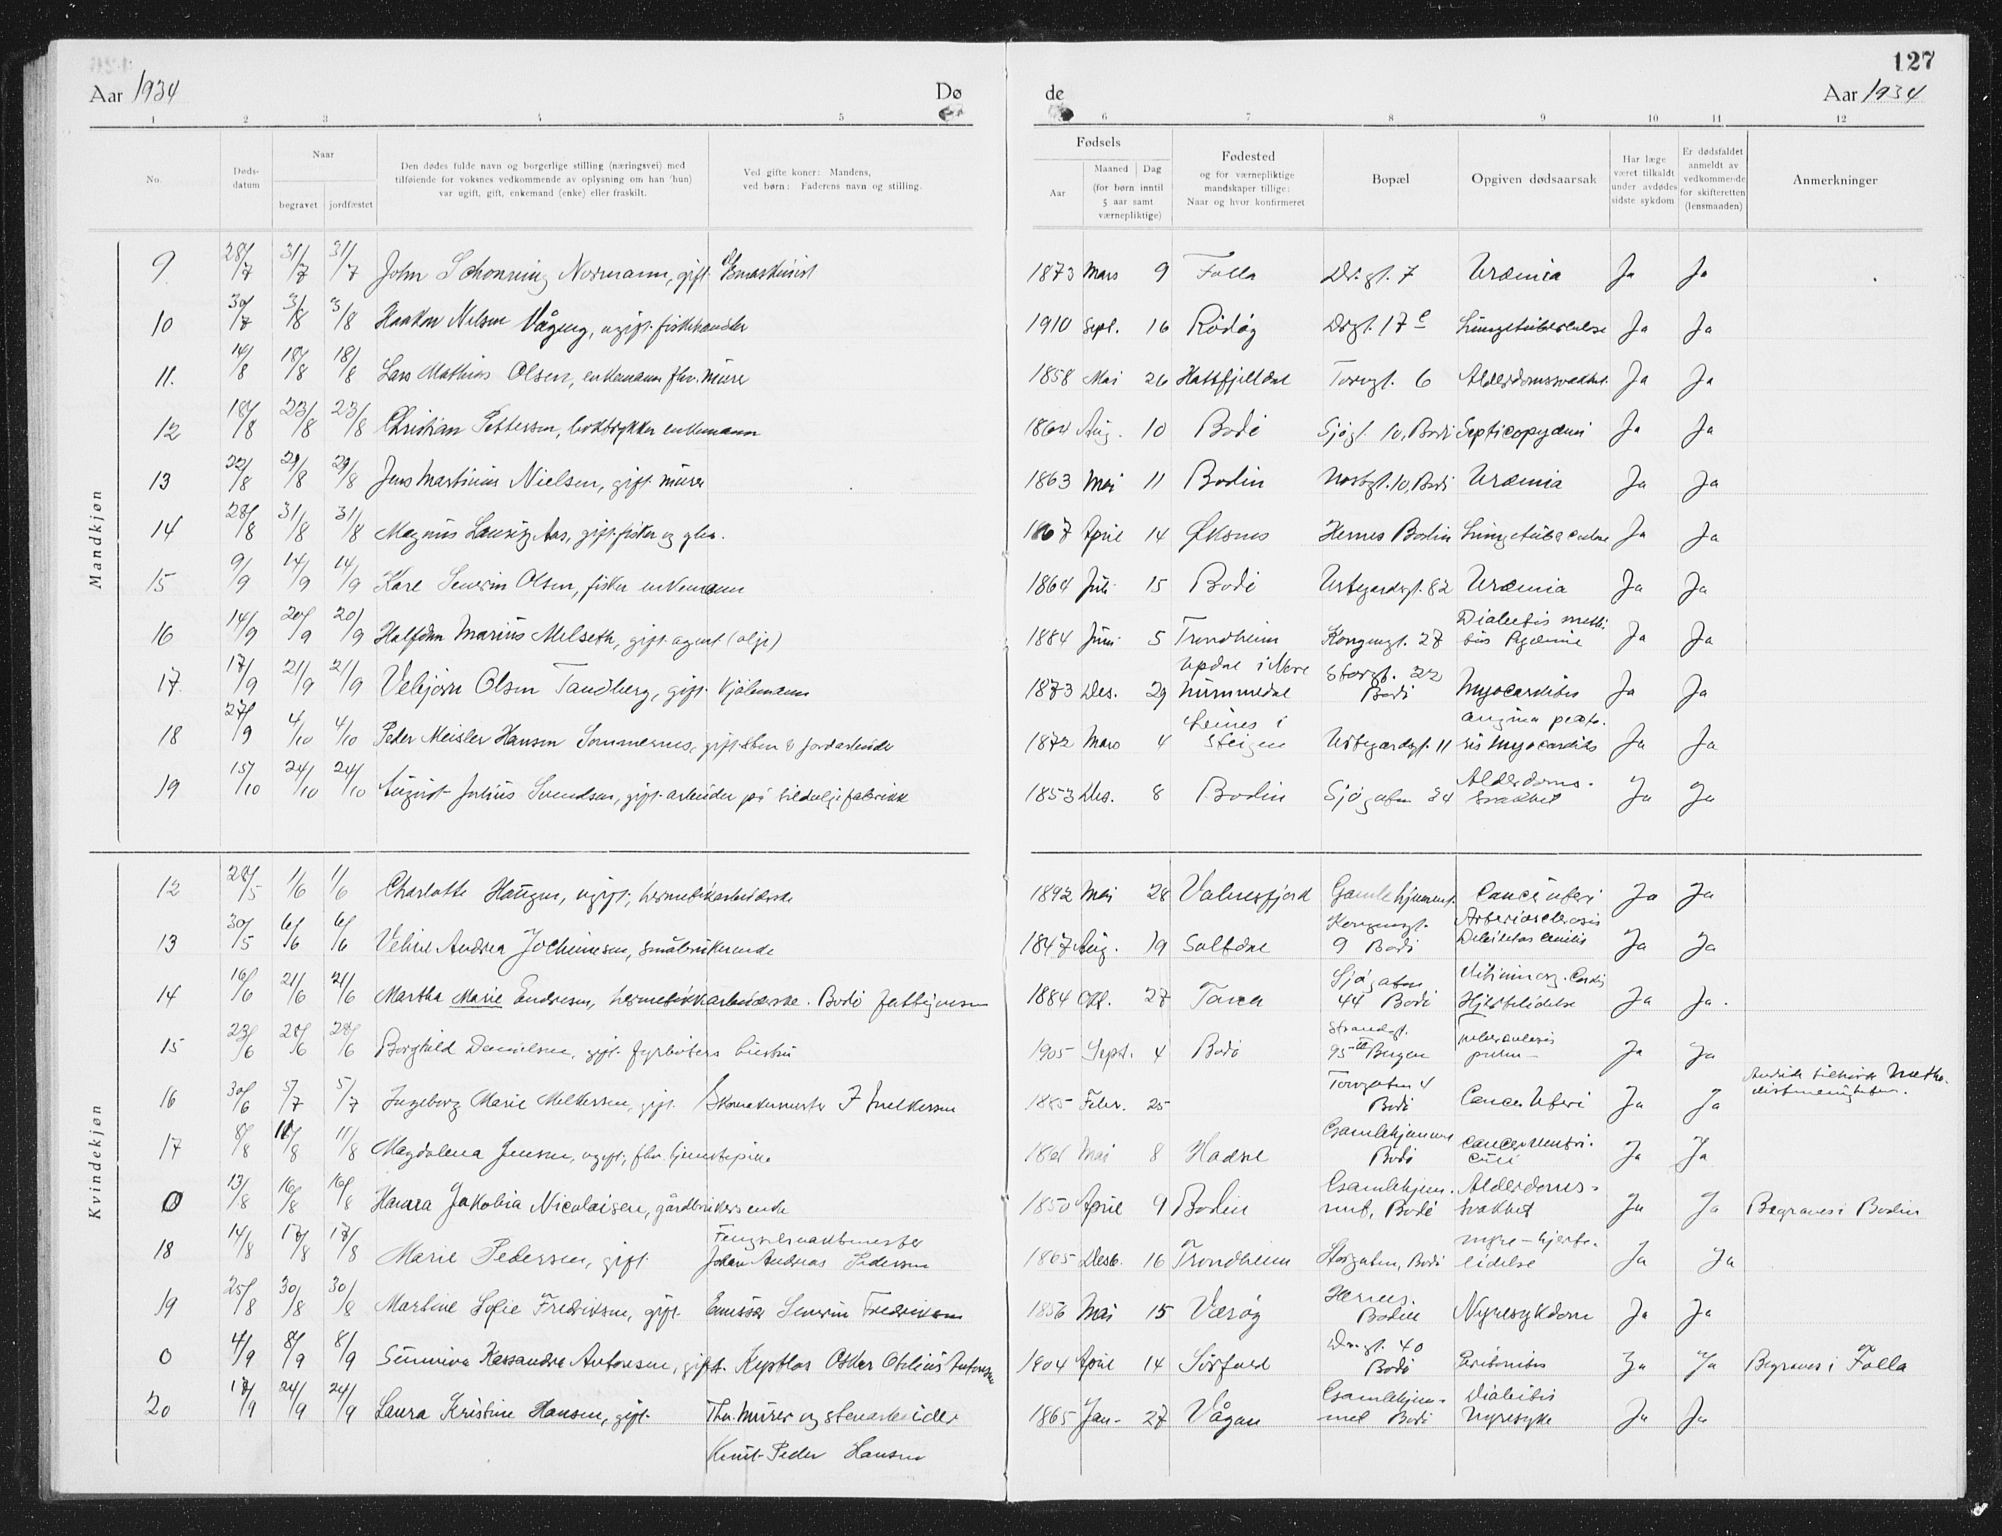 127
Aar 1934 Dø de Aar 1934
1 2 3 4 5 6 7 8 9 10 11 12
No.
Døds-datum
Naar
begravet jordfæstet
Den dødes fulde navn og borgerlige stilling (næringsvei) med
tilføiende for voksnes vedkommende av oplysning om han (hun)
var ugift, gift, enkemand (enke) eller fraskilt.
Ved gifte koner: Mandens,
ved børn: Faderens navn og stilling.
Fødsels
Aar
Maaned Dag
(for børn inntil
5 aar samt
værnepliktige)
Fødested
og for værnepliktige
mandskaper tillige:
Naar og hvor konfirmeret
Bopæl
Opgiven dødsaarsak
Har læge
været tilkaldt
under avdødes
sidste sykdom
Er dødsfaldet
anmeldt av
vedkommende
for skifteretten
(lensmanden)
Anmerkninger
Mandkjøn
9 28/7 31/7 31/7 John Schonning Normann, gift 1873 Mars 9 Folla Drgt. 7 Uræmia Ja Ja
10 30/7 3/8 3/8 Haakon Nilsen Vågeng, ugift fiskehandler 1910 Sept. 16 Rødøy Drgt. 17 c Lungetuberkulose Ja Ja
11. 14/8 18/8 18/8 Lars Mathias Olsen, enkemann fhv. murer 1858 Mai 26 Hattfjelldal Torvgt. 6 Alderdomssvakhet Ja Ja
12 18/8 23/8 23/8 Christian Pettersen, boktrykker enkemann 1864 Aug. 10 Bodø Sjøgt. 10, Bodø Septicopyæmi Ja Ja
13 22/8 29/8 29/8 Jens Martinius Nielsen, gift murer 1863 Mai 11 Bodin 10, Bodø Uræmia Ja Ja
14 28/8 31/8 31/8 Magnus Lauritz Aas, gift fisker og gbr. 1867 April 14 Øksnes Hernes Bodin Lungetuberculose Ja Ja
15 9/9 14/9 14/9 Kare Severin Olsen, fisker enkemann 1864 Juli 15 Bodø Urtegardsgt. 82 Uræmia Ja Ja
16 14/9 20/9 20/9 Halfdan Marius Melseth, gift agent (olje) 1884 Juni 5 Trondheim Kongensgt. 27 Diabetis melli-
tus Pyæmie Ja Ja
17. 17/9 21/9 21/9 Vebjørn Olsen Tandberg, gift kjøbmann 1873 Des. 29 Opdal i Nore
Nummedal Storgt. 22
Bodø Myocarditis Ja Ja
18 27/9 4/10 4/10 Peder Meisler Hansen Sommernes, gift sten & jordarbeider 1872 Mars 4 Leines i
Steigen Urtegardsgt. 11 Angina pecto-
ris Myocarditis Ja Ja
19 15/10 24/10 24/10 August Julius Svendsen, gift arbeider på sildoljefabrikk 1853 Des. 8 Bodin Sjøgaten 34 Alderdoms-
svakhet Ja Ja
Kvindekjøn
12 28/5 1/6 1/6 Charlotte Haugen, ugift, hermetikarbeiderske 1892 Mai 28 Valnesfjord Gamlehjemmet Cancer uteri Ja Ja
13 30/5 6/6 6/6 Andrea Jochimsen, småbrukerenke 1847 Aug. 19 Saltdal Kongensgt.
9 Bodø Arteriosclerosis
Debilitas senilis Ja Ja
14 16/6 21/6 21/6 Martha Marie Endresen, hermetikkarbeiderske. Bodø fattigvesen 1884 Okt. 27 Tana Sjøgaten
44 Bodø Cordis
Hjertelidelse Ja Ja.
15 23/6 28/6 28/6 Borghild Danielsen, gift fyrbøters hustru 1905 Sept. 4 Bodø Strandgt.
95 Bergen Tuberculosis
pulm - Ja Ja
16 30/6 5/7 5/7 Ingeborg Marie Melkersen, gift Skomakermester J Melkersen 1885 Febr. 25 Torvgaten 4
Bodø Cancer Uteri Ja Ja Avdøde tilhørte Metho-
distmenigheten.
17 8/8 11/8 11/8 Magdalena Jensen, ugift, fhv. tjenestepike Mai 8 Hadsel Gamlehjemmet
Bodø Cancer ventri-
culi Ja Ja
0 13/8 16/8 16/8 Hanna Jakobia Nicolaisen, gårdbrukersenke 1850 April 9 Bodin Gamlehjem-
met, Bodø Alderdoms-
svakhet Ja Ja Begraves i Bodin
18 14/8 17/8 17/8 Marie Pedersen, gift Fengselsvaktmester
Johan Andreas Pedersen 1865 Desb. 16 Trondheim Storgaten, Bodø nyre-hjerte-
lidelse Ja Ja
19 25/8 30/8 30/8 Martine Sofie Fredriksen, gift Emissær Severin Fredriksen 1856 Mai 15 Værøy Hernes
Bodin Nyresykdom Ja Ja
0 4/9 8/9 8/9 Sunniva Kassandra Antonsen, gift Kystlos Oskar Otelius Antonsen 1904 April 14 Sørfold Drgt. 40
Bodø Peritonitis Ja Ja Begraves i Folla
20 17/9 24/9 24/9 Laura Kristine Hansen, gift Fhv. murer og stenarbeider
Knut Peder Hansen 1865 Jan- 27 Vågan Gamlehjem-
met Bodø Diabetis
Nyresyke Ja Ja